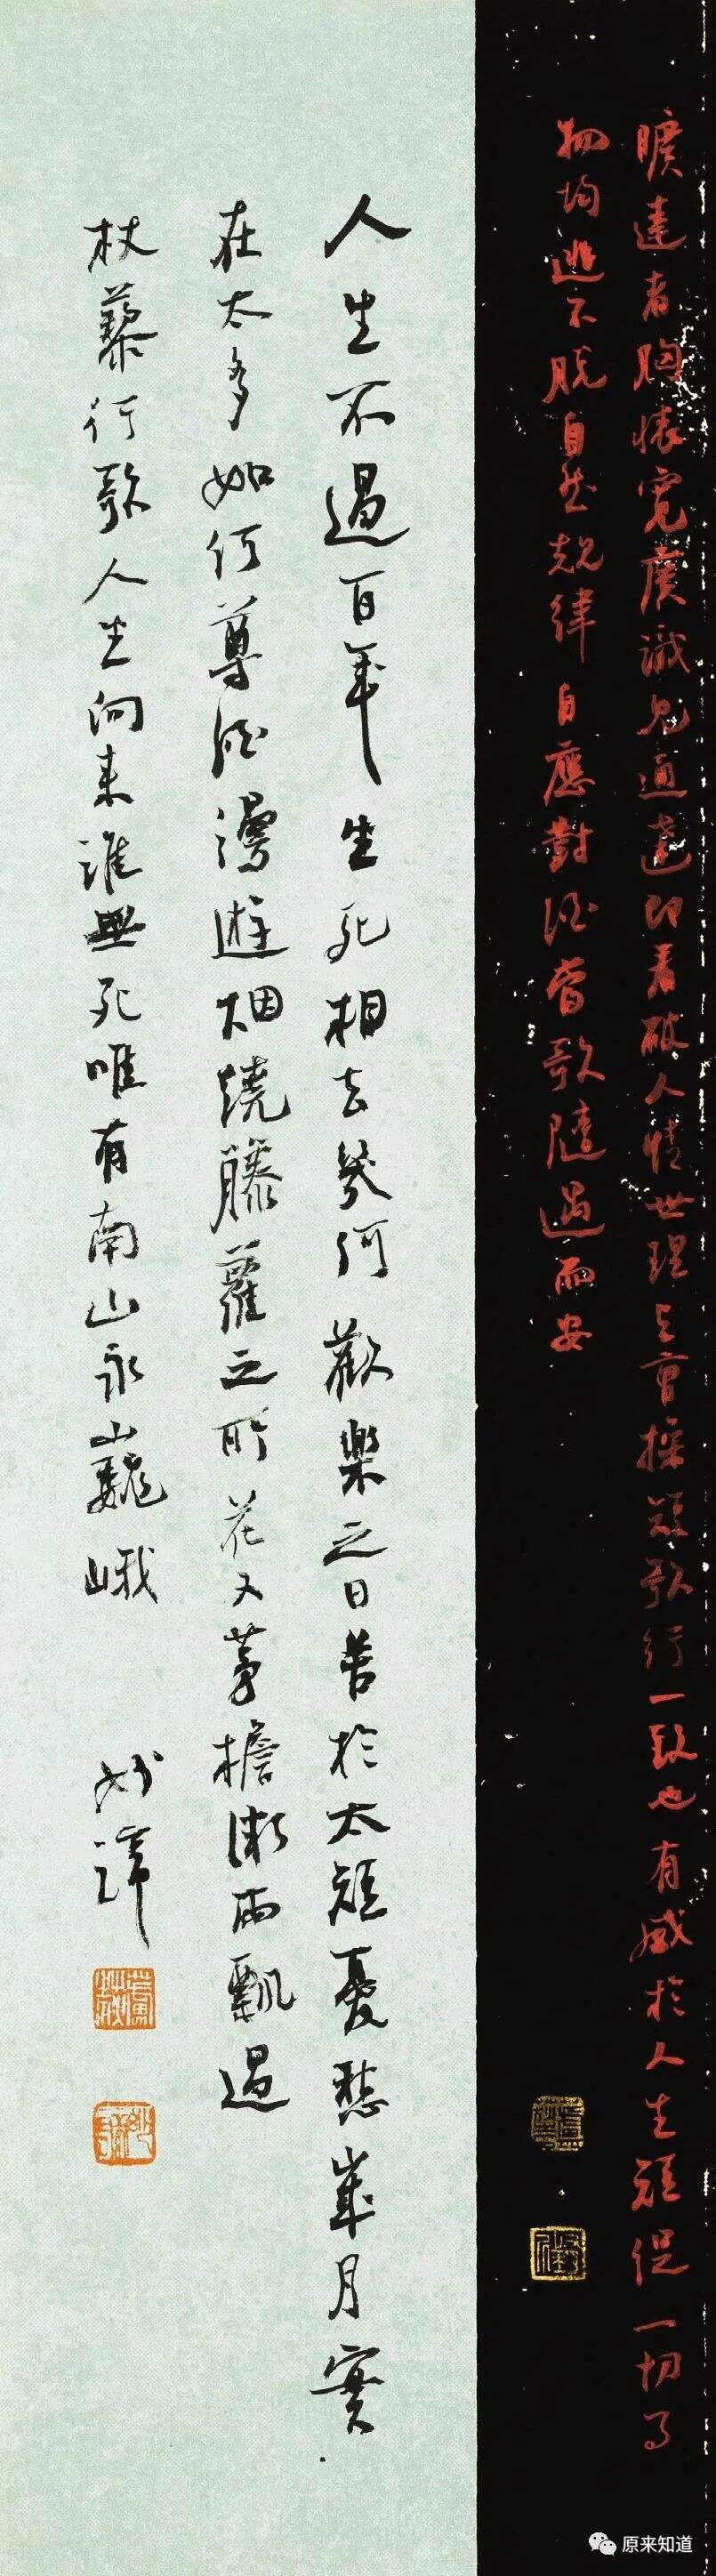 曠達者胸懷寬廣識見通達即看破人情世理与曹操短歌行一致也有感於人生短促一切事
物均逃不脱自然規律自應對酒當歌隨遇而安
人生不過百年生死相去幾何歡樂之日苦於太短憂愁歲月實
在太多如何尊酒漫遊烟繞藤蘿之所花又茅檐漸雨飄過
杖藜行歌人生向来誰無死唯有南山永巍峨
妙諱
原来知道